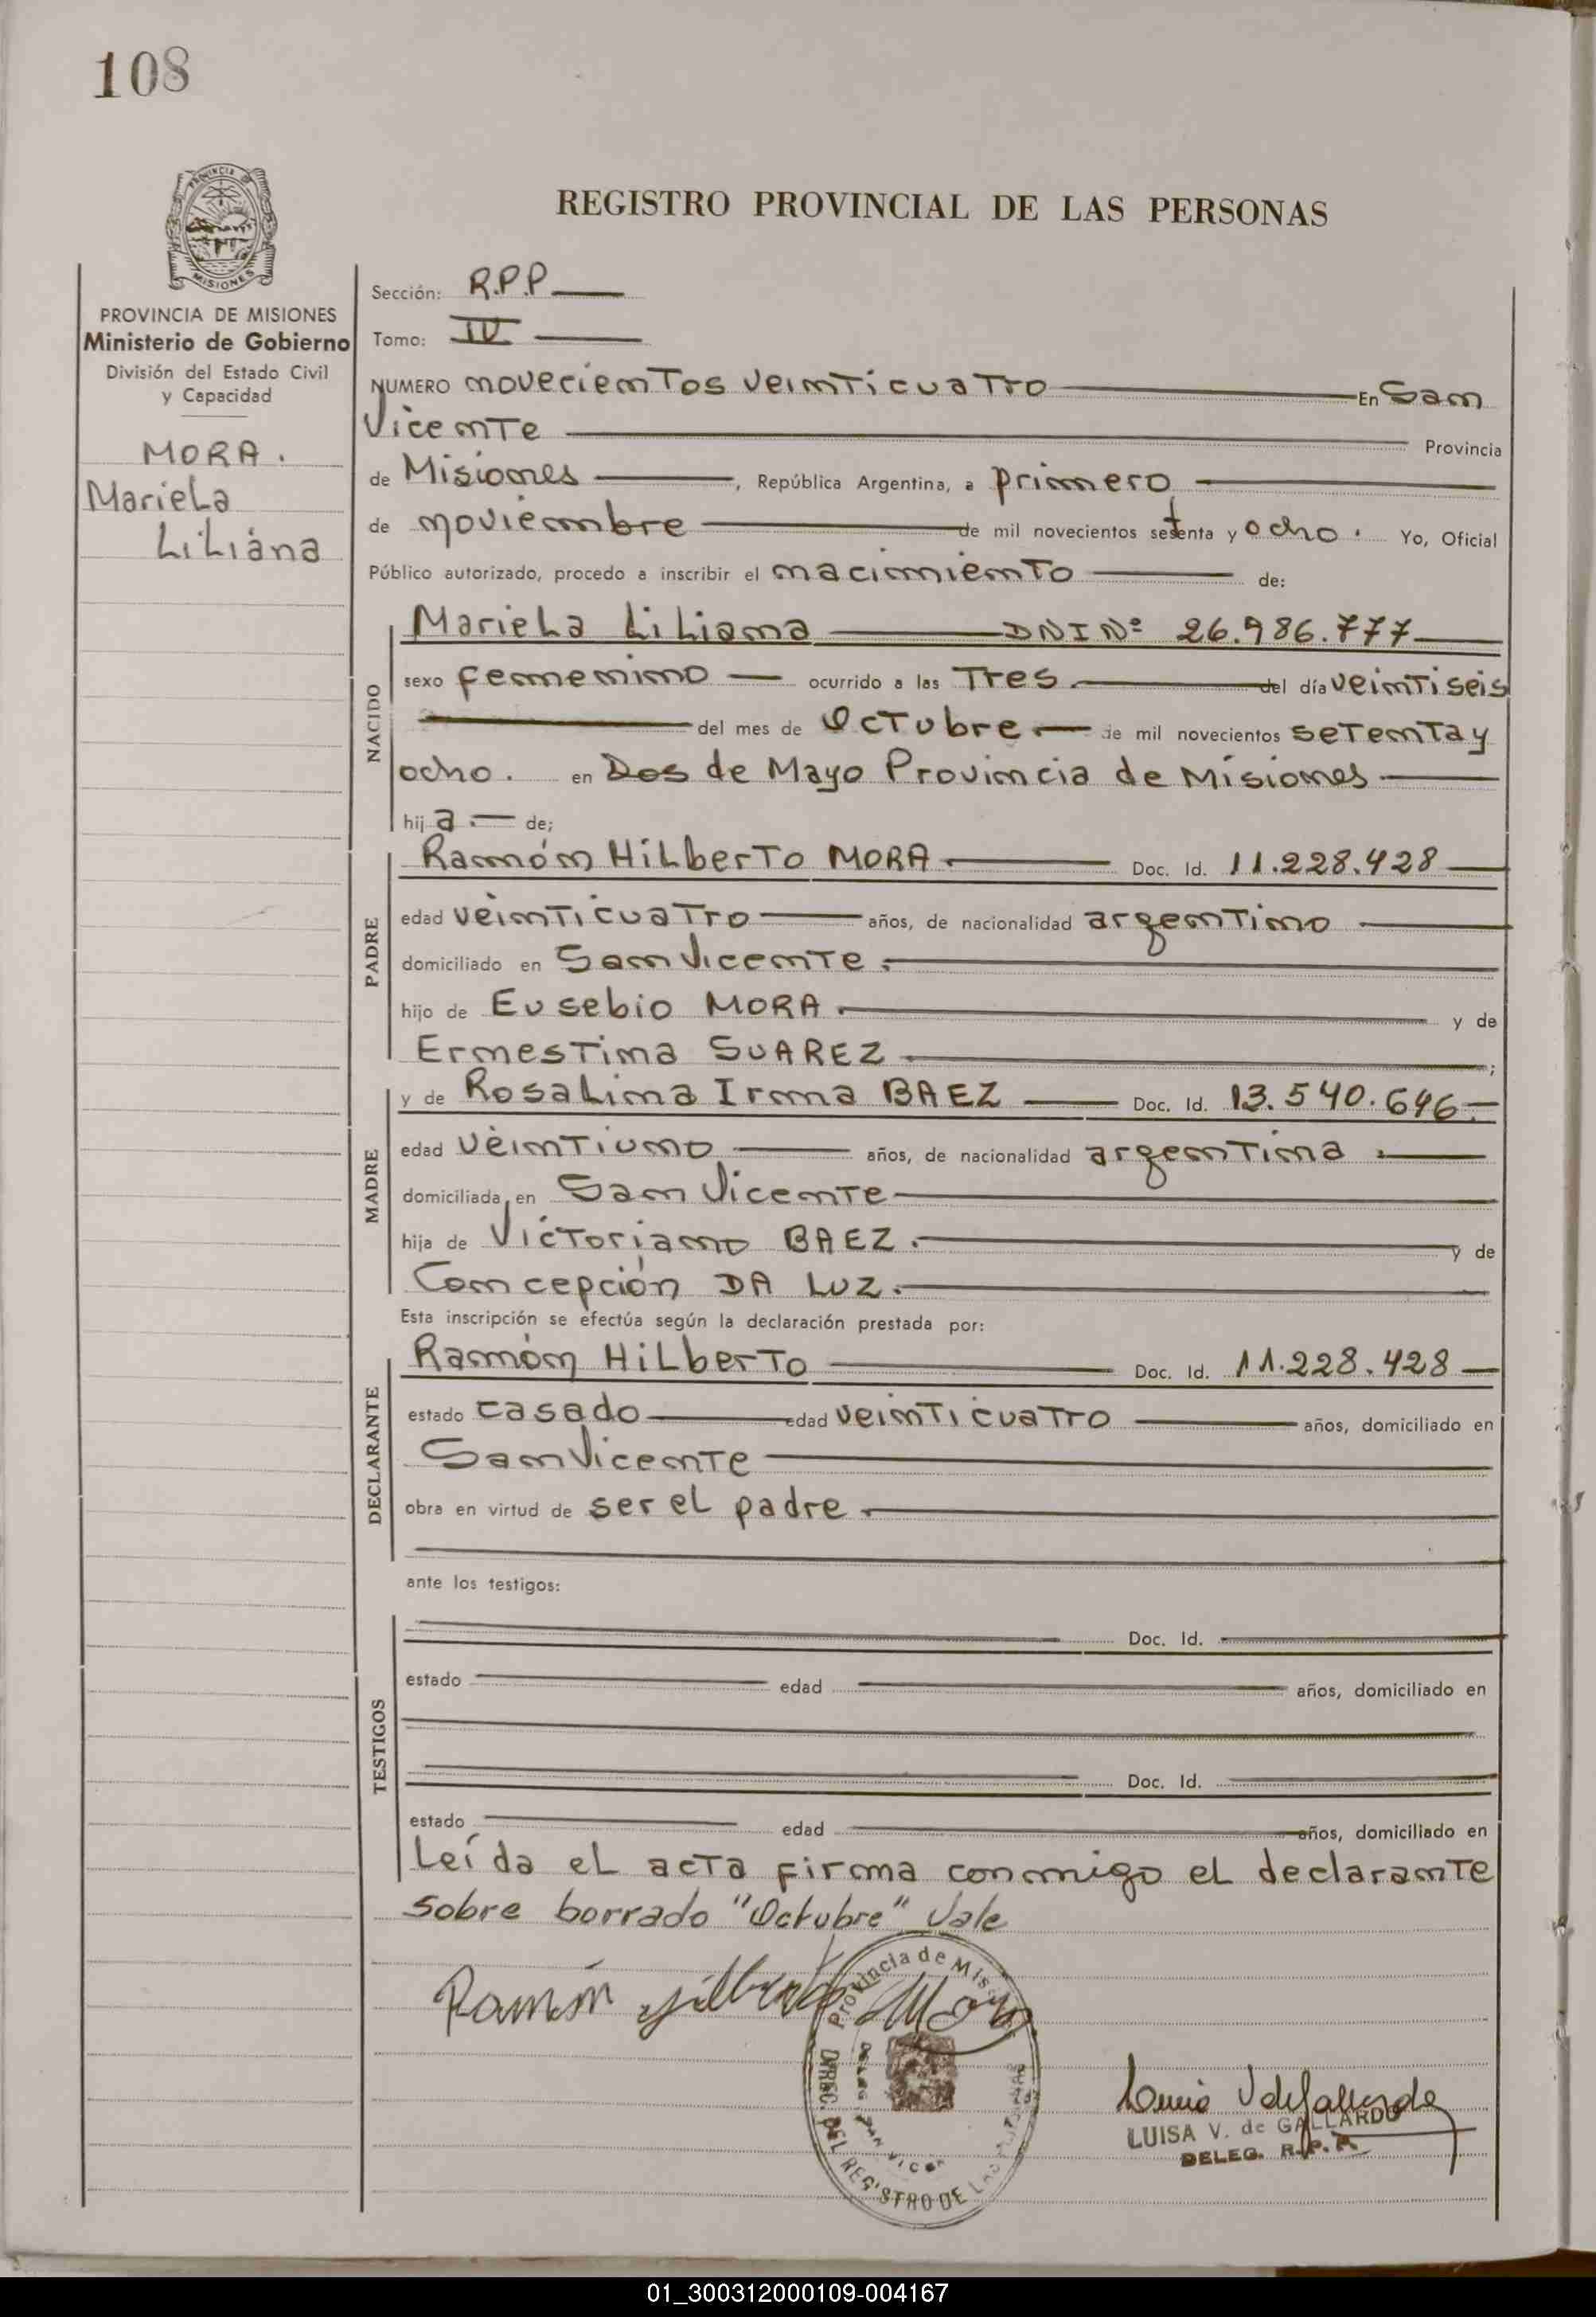 108
PROVINCIA DE
MISIONES
REGISTRO PROVINCIAL DE LAS PERSONAS
PROVINCIA DE MISIONES
Ministerio de Gobierno
División del Estado Civil
y Capacidad
MORA.
Mariela
Liliana
Sección: R.P.P
Tomo: IV
NUMERO novecientos veinticuatro En San
Vicente Provincia
de Misiones, República Argentina, a primero
de noviembre de mil novecientos setenta y ocho. Yo, Oficial
Público autorizado, procedo a inscribir el nacimiento de:
NACIDO
Mariela Liliana DNI Nº 26.986.777
sexo femenino ocurrido a las Tres del día veintiseis
del mes de Octubre de mil novecientos setenta y
ocho. en Dos de Mayo Provincia de Misiones
hij a de;
PADRE
Ramón Hilberto MORA Doc. Id. 11.228.428
edad veinticuatro años, de nacionalidad argentino
domiciliado en San Vicente.
hijo de Eusebio MORA y de
Ernestina SUAREZ ;
MADRE
y de Rosalina Irma BAEZ Doc. Id. 13.540.646
edad veintiuno años, de nacionalidad argentina
domiciliada en San Vicente
hija de Victoriano BAEZ. y de
Concepción DA LUZ.
Esta inscripción se efectúa según la declaración prestada por:
DECLARANTE
Ramón Hilberto Doc. Id. 11.228.428
estado casado edad veinticuatro años, domiciliado en
San Vicente
obra en virtud de ser el padre
ante los testigos:
TESTIGOS
Doc. Id.
estado edad años, domiciliado en
Doc. Id.
estado edad años, domiciliado en
Leída el acta firma conmigo el declarante
sobre borrado "Octubre" Vale
Ramón Hilberto Mora
Provincia de Mis
DIREC. DEL REGISTRO DE LAS PERSONAS
Luisa V de Gallardo
LUISA V. de GALLARDO
DELEG. R.P.P.
01_300312000109-004167